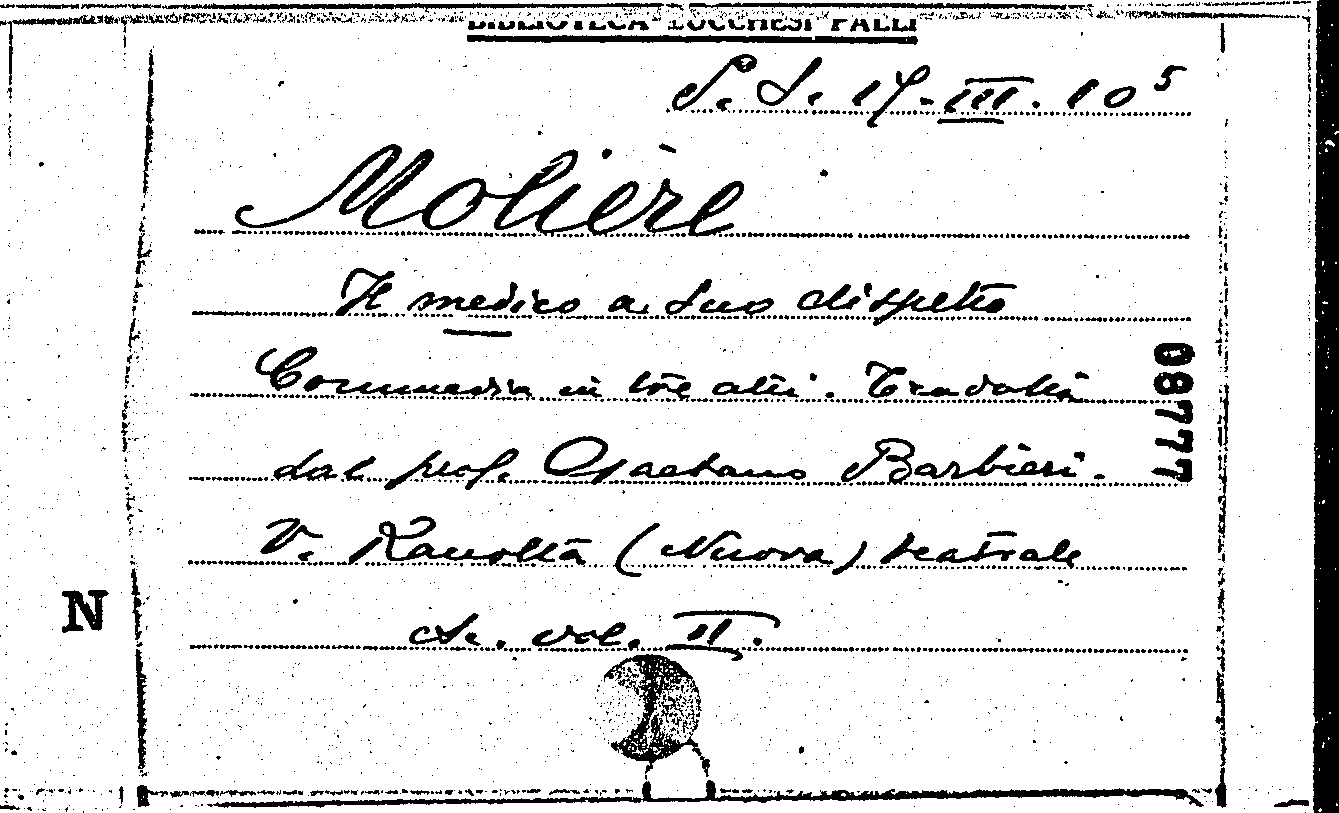 BIBLIOTECA LUCCHESI PALLI
S. S. 17. III. 10 5
Molière
Il medico a suo dispetto
Commedia in tre atti. Tradotta
dal prof. Gaetano Barbieri.
V. Raccolta (Nuova) teatrale
vol. II.
08777
N